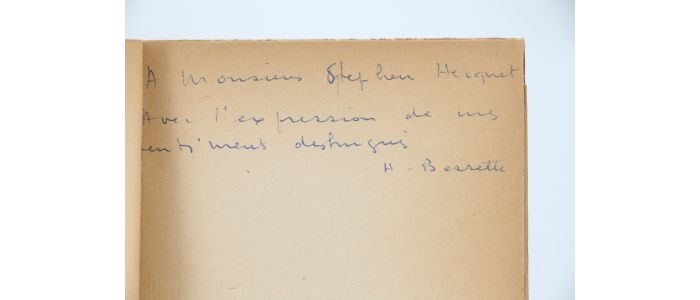 A Monsieur Stephen Hecquet
Avec l'expression de mes
sentiments distingués
H. Bessette